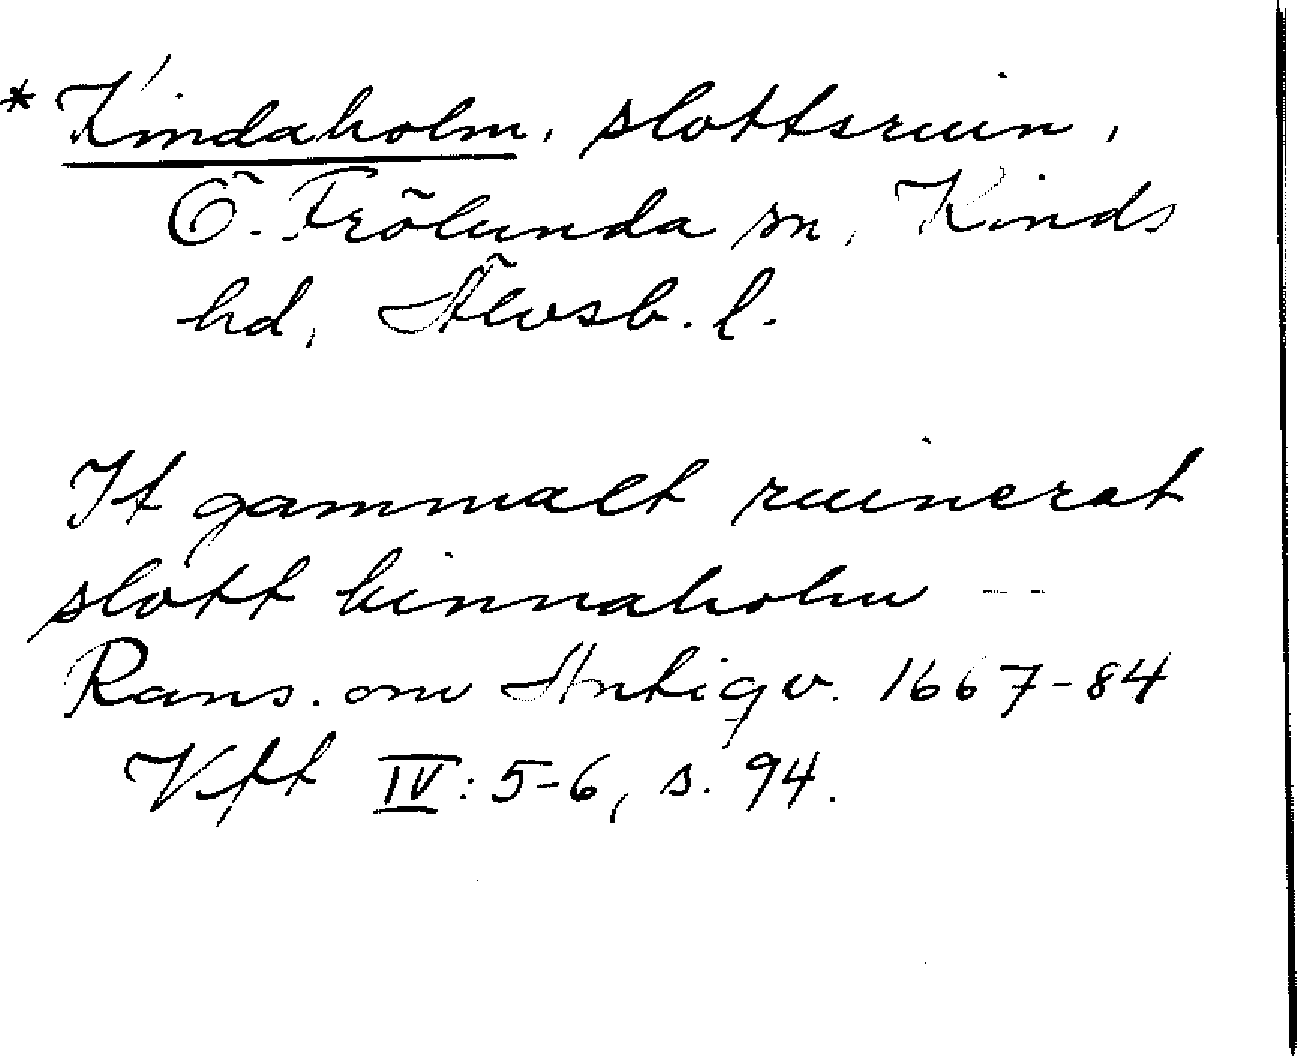 * Kindaholm, slottsruin,
Ö. Frölunda sn, Kinds
hd, Älvsb. l.
It gammalt ruinerat
slott kinnaholm --
Rans. om Antiqv. 1667-84
Vftt IV: 5-6, s. 94.